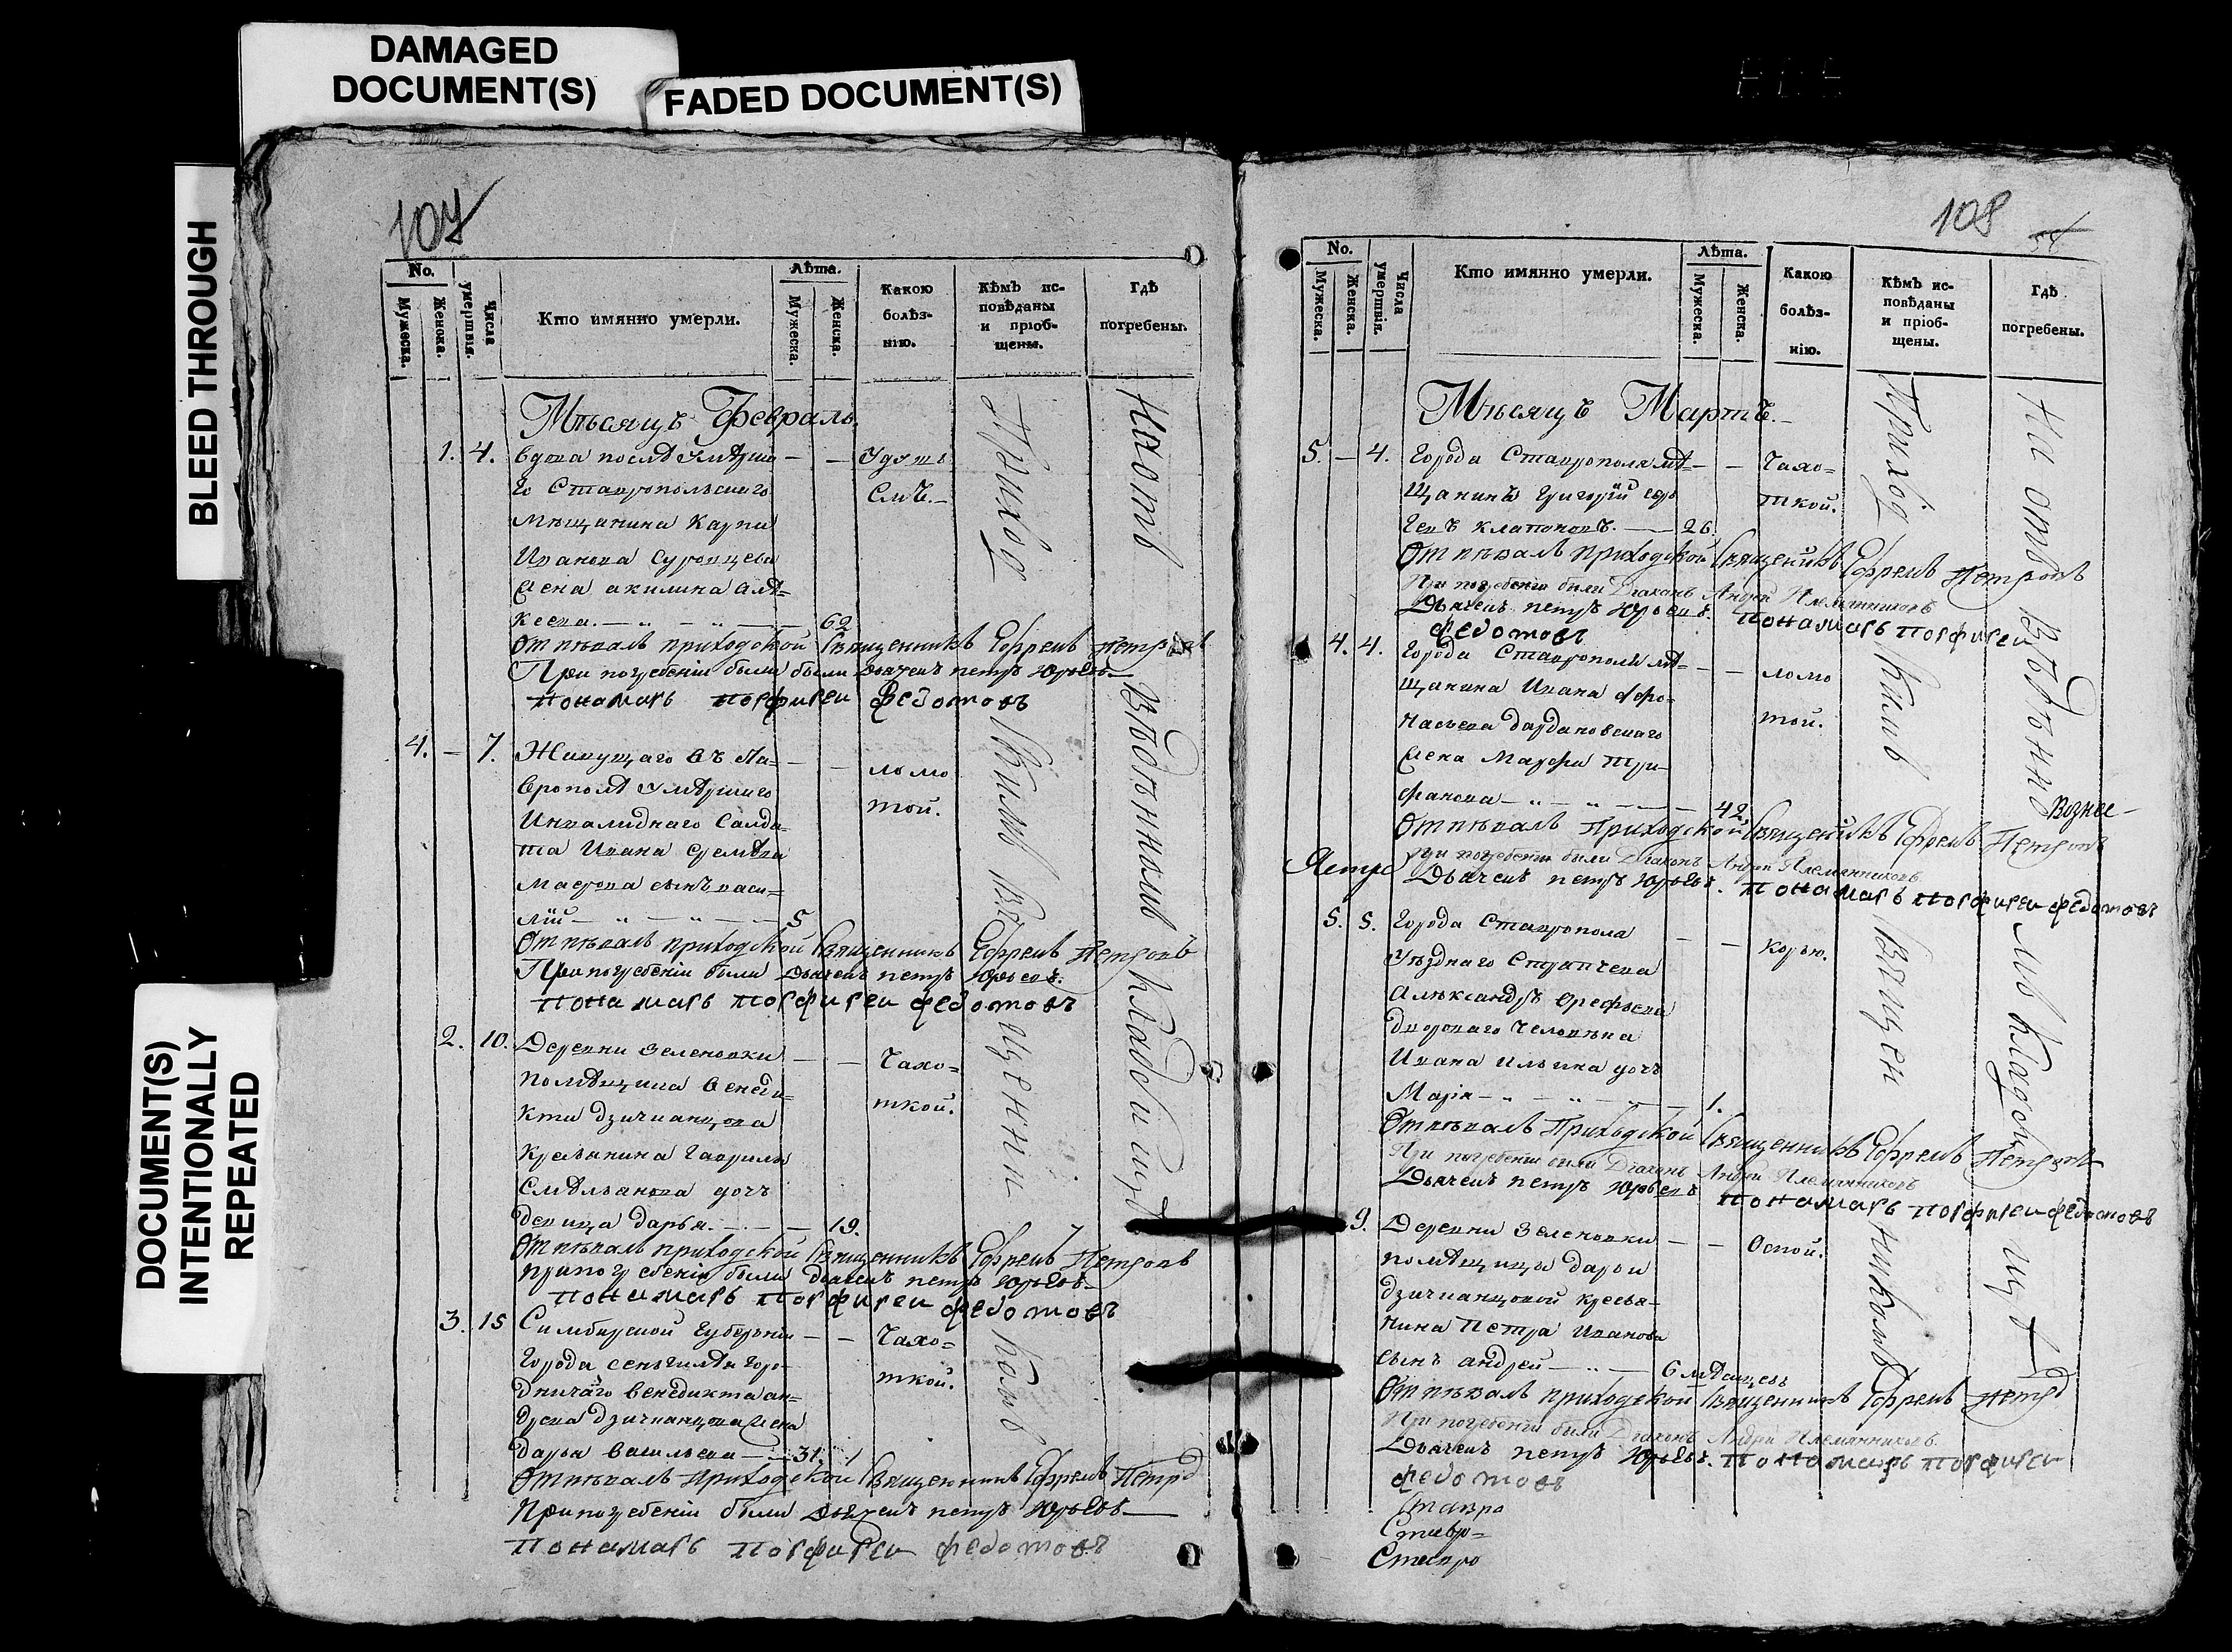 DAMAGED
DOCUMENT(S)
FADED DOCUMENT(S)
BLEED THROUGH
DOCUMENT(S)
INTENTIONALLY
REPEATED
107
No.
Мужеска.
Женска.
Числа умертвія.
Кто имянно умерли.
Лѣта.
Мужеска.
Женска.
Какою болѣз-
нію.
Кѣмъ ис-
повѣданы
и пріоб-
щены.
Гдѣ
погребены.
Мѣсяцъ Февраль.
1. 4. Вдова послѣ умѣрша — — Удушь
го Ставропольскаго Емъ.
мѣщанина Карпа
Иванова Суровцева
жена акилина алѣ=
ксева. — 62
Отпѣвалъ приходской Священникъ Ефремъ Петровъ
При погребеніи были были дьячекъ петръ Юрьевъ
понамарь порфирей федотовъ
4. — 7. Живущаго въ Ста= — — ломо
врополѣ умѣршаго той.
Инвалиднаго Салда=
та Ивана
сынъ васи=
лій — 5
Отпѣвалъ приходской Священникъ Ефремъ Петровъ
При погребеніи были дьячекъ петръ Юрьевъ.
понамарь порфирей федотовъ
2. 10. Деревни зеленовки — — Чахо=
помѣщика венеди= ткой.
кта дзичканцова
кресьянина гаврилы
Смѣльанова дочь
девица дарья. — 19.
Отпѣвалъ приходской Священникъ Ефремъ Петровъ
при погребеніи были дьячекъ петръ Юрьевъ
понамарь порфирей федотовъ
3. 15 Симбирской Губерніи — — Чахо=
Города сенгилѣя горо- ткой.
дничаго венедикта ан=
древа дзичканцова жена
дарья васильева — 31.
Отпѣвалъ приходской Священникъ Ефремъ Петро
При погребеніи были дьячекъ петръ Юрьевъ
понамарь порфирей федотовъ
Приход скимъ Священни комъ
На отведенномъ кладбищѣ
108
54
No.
Мужеска.
Женска.
Числа умертвія.
Кто имянно умерли.
Лѣта.
Мужеска.
Женска.
Какою
болѣз-
нію.
Кѣмъ ис-
повѣданы
и пріоб-
щены.
Гдѣ
погребены.
Мѣсяцъ Мартъ.
5. — 4. Города Ставрополя мѣ= — — Чахо=
щанинъ Григорій ткой.
26.
Отпѣвалъ приходской Священникъ Ефремъ Петровъ
При погребеніи были Діаконъ Андрей Племянниковъ
Дьячекъ петръ Юрьевъ. понамарь порфирей
федотовъ
4. 4. Города Ставрополя мѣ= — — ломо
щанина Ивана Афо= той.
насьева дардановскаго
жена Марфа три-
фанова — 42.
Вознес-
Отпѣвалъ Приходской Священникъ Ефремъ Петровъ
При погребеніи были Діаконъ Андрей Племянниковъ
Дьячекъ петръ Юрьевъ. понамарь порфирей федотовъ
5. 5. Города Ставрополя — — Корью.
Уѣзднаго Стряпчева
Алѣксандръ Ерефьева
двороваго человѣка
Ивана Ильина дочь
Марія — 1.
Отпѣвалъ Приходской Священникъ Ефремъ Петровъ
При погребеніи были Діаконъ Андрей Племянниковъ
Дьячекъ петръ Юрьевъ понамарь порфирей федотовъ
9. Деревни зеленовки — — Оспой.
помѣщицы дарьи
дзичканцовой кресья-
нина Петра Иванова
сынъ андрей — 6 мѣсяцевъ
Отпѣвалъ приходской Священникъ Ефремъ Петро
При погребеніи были Діаконъ Андрей Племянниковъ.
Дьячекъ петръ Юрьевъ. понамарь порфирей
федотовъ
Ставро
Ставро=
Ставро
Приход скимъ Священ никомъ
На отведенномъ кладбищѣ